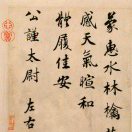 蒙惠水林檎
感天氣暄和
體履佳安
公謹太尉左右